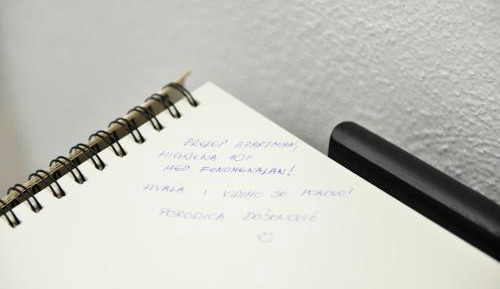 PRELEP APARTMAN,
HIGIJENA 10!
MED FENOMENALAN!
HVALA I VIDIMO SE PONOVO!
PORODICA